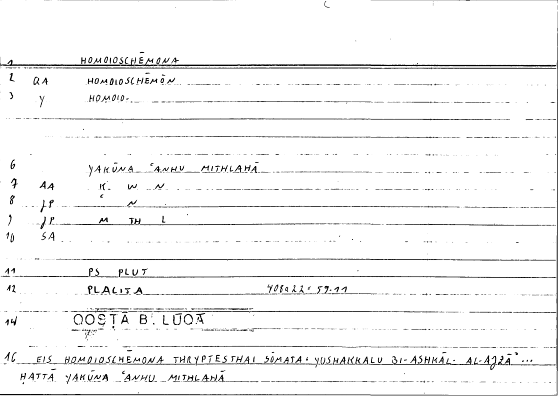 1 HOMOIOSCHĒMONA
2 QA HOMOIOSCHĒMŌN
3 Y HOMOIO-
6 YAKŪNA ʿANHU MITHLAHĀ
7 AA K W N
8 JP ʿ N
9 JP M TH L
10 SA
11 PS PLUT
12 PLACITA 408a22: 59.11
14 QOSṬĀ B. LŪQĀ
16 EIS HOMOIOSCHĒMONA THRYPTESTHAI SŌMATA: YUSHAKKALU BI-ASHKĀL- AL-AJZĀʾ ...
ḤATTĀ YAKŪNA ʿANHU MITHLAHĀ